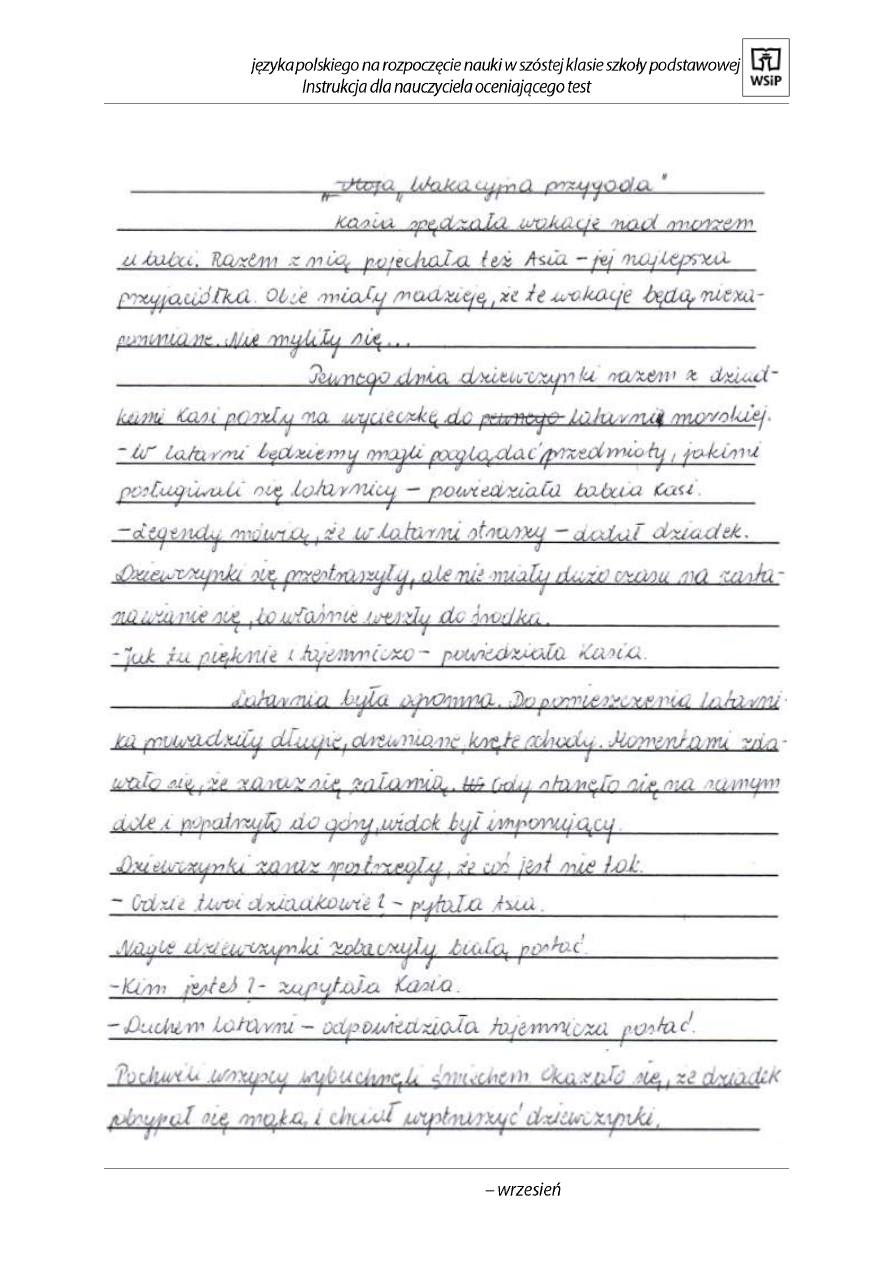 języka polskiego na rozpoczęcie nauki w szóstej klasie szkoły podstawowej
Instrukcja dla nauczyciela oceniającego test
WSiP
„Moja „Wakacyjna przygoda"
Kasia spędzała wakacje nad morzem
u babci. Razem z nią pojechała też Asia – jej najlepsza
przyjaciółka. Obie miały nadzieję, że te wakacje będą nieza-
pomniane. Nie myliły się...
Pewnego dnia dziewczynki razem z dziad-
kami Kasi poszły na wycieczkę do pewnego latarni morskiej.
- W latarni będziemy mogli poglądać przedmioty, jakimi
posługiwali się latarnicy – powiedziała babcia Kasi.
- Legendy mówią, że w latarni straszy – dodał dziadek.
Dziewczynki się przestraszyły, ale nie miały dużo czasu na zasta-
nawianie się, bo właśnie weszły do środka.
- Jak tu pięknie i tajemniczo – powiedziała Kasia.
Latarnia była ogromna. Do pomieszczenia latarni-
ka prowadziły długie, drewniane, kręte schody. Momentami zda-
wało się, że zaraz się załamią. Gdy stanęło się na samym
dole i popatrzyło do góry, widok był imponujący.
Dziewczynki zaraz spostrzegły, że coś jest nie tak.
- Gdzie twoi dziadkowie? – pytała Asia.
Nagle dziewczynki zobaczyły białą postać.
- Kim jesteś? - zapytała Kasia.
- Duchem latarni – odpowiedziała tajemnicza postać.
Po chwili wszyscy wybuchnęli śmiechem. Okazało się, że dziadek
obsypał się mąką i chciał wystraszyć dziewczynki.
– wrzesień